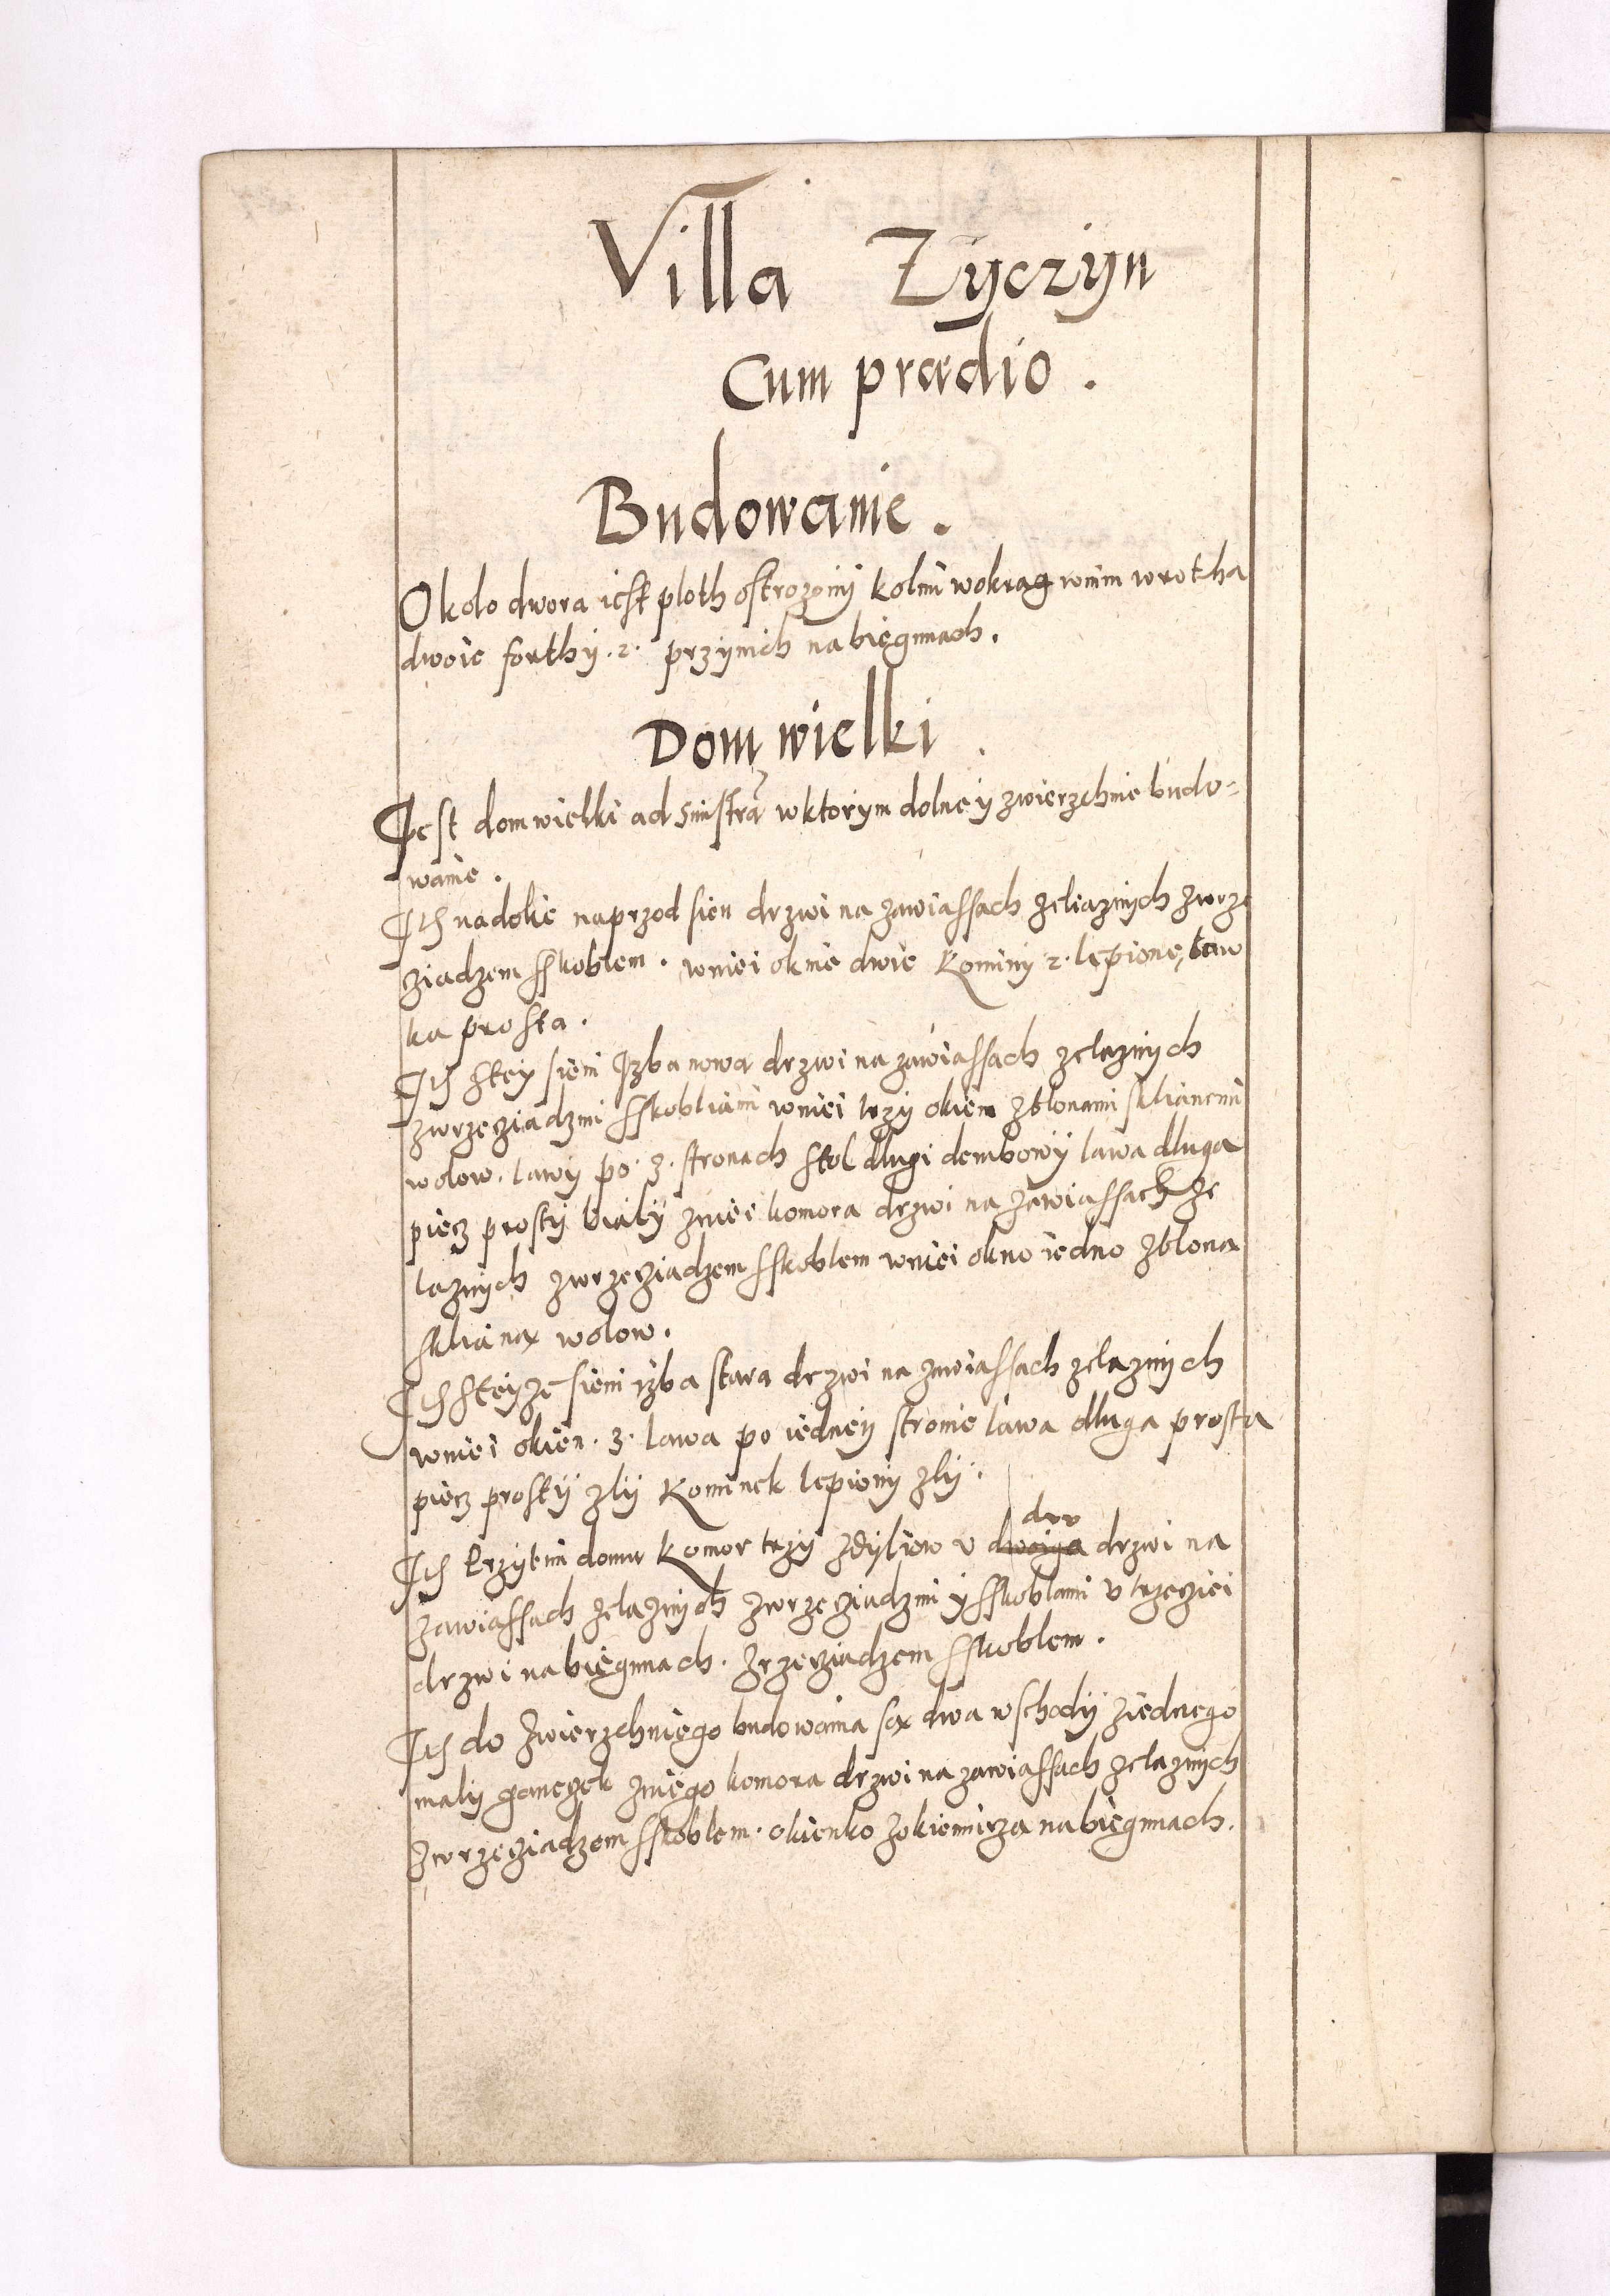 Villa Zyczyn
Cum prædio .
Budowanie .
Okolo dwora iest ploth ostrozny kolni wokrag wnim wrotha
dwoie forthy . 2 . przynich na biegunach .
Dom wielki .
Jest dom wielki ad sinistrã wktorym dolne y zwierzchnie budo=
wanie .
Jth nadolie naprzod sien drzwi na zawiassach zeliaznych zwrze
ziadzem sskoblem . wniei oknie dwie Kominy 2 . lepione, law
ka prosta .
Jth stey sieni Jzba nowa drzwi na zawiassach zelaznych
zwrzeziadzmi sskobliami wniei trzy okien zblonami sklianemi
wolow . lawy po . 3 . stronach stol dlugi dembowy lawa dluga
piecz prosty bialy zniei komora drzwi na zawiassach ze
laznych zwrzeziadzem sskoblem wniei okno iedno zblona
skliana wolow .
Jth steyze sieni izba stara drzwi na zawiassach zelaznych
wniei okien . 3 . lawa po iedney stronie lawa dluga prosta
piecz prosty zly Kominek lepiony zly .
Jth przytim domu Komor trzy zdyliow v dwoiga dwu drzwi na
zawiassach zelaznych zwrzeziadzmi y sskoblami v trzeciei
drzwi na biegunach . zrzeziadzem sskoblem .
Jth do zwierzchniego budowania sa dwa wschody ziednego
maly ganeczek zniego komora drzwi na zawiassach zelaznych
zwrzeziadzem sskoblem . okienko zokiennicza na biegunach .